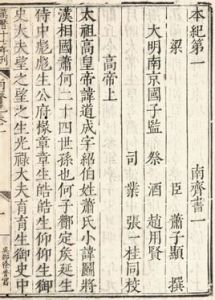 本紀第一 南齊書一
梁 臣 蕭子顯 撰
大明南京國子監 祭酒 趙用賢
司業 張一桂同校
高帝上
太祖高皇帝諱道成字紹伯姓蕭氏小諱鬬將
漢相國蕭何二十四世孫也何子酇定矦延生
侍中彪彪生公府掾章章生皓皓生仰仰生御
史大夫望之望之生光祿大夫育育生御史中